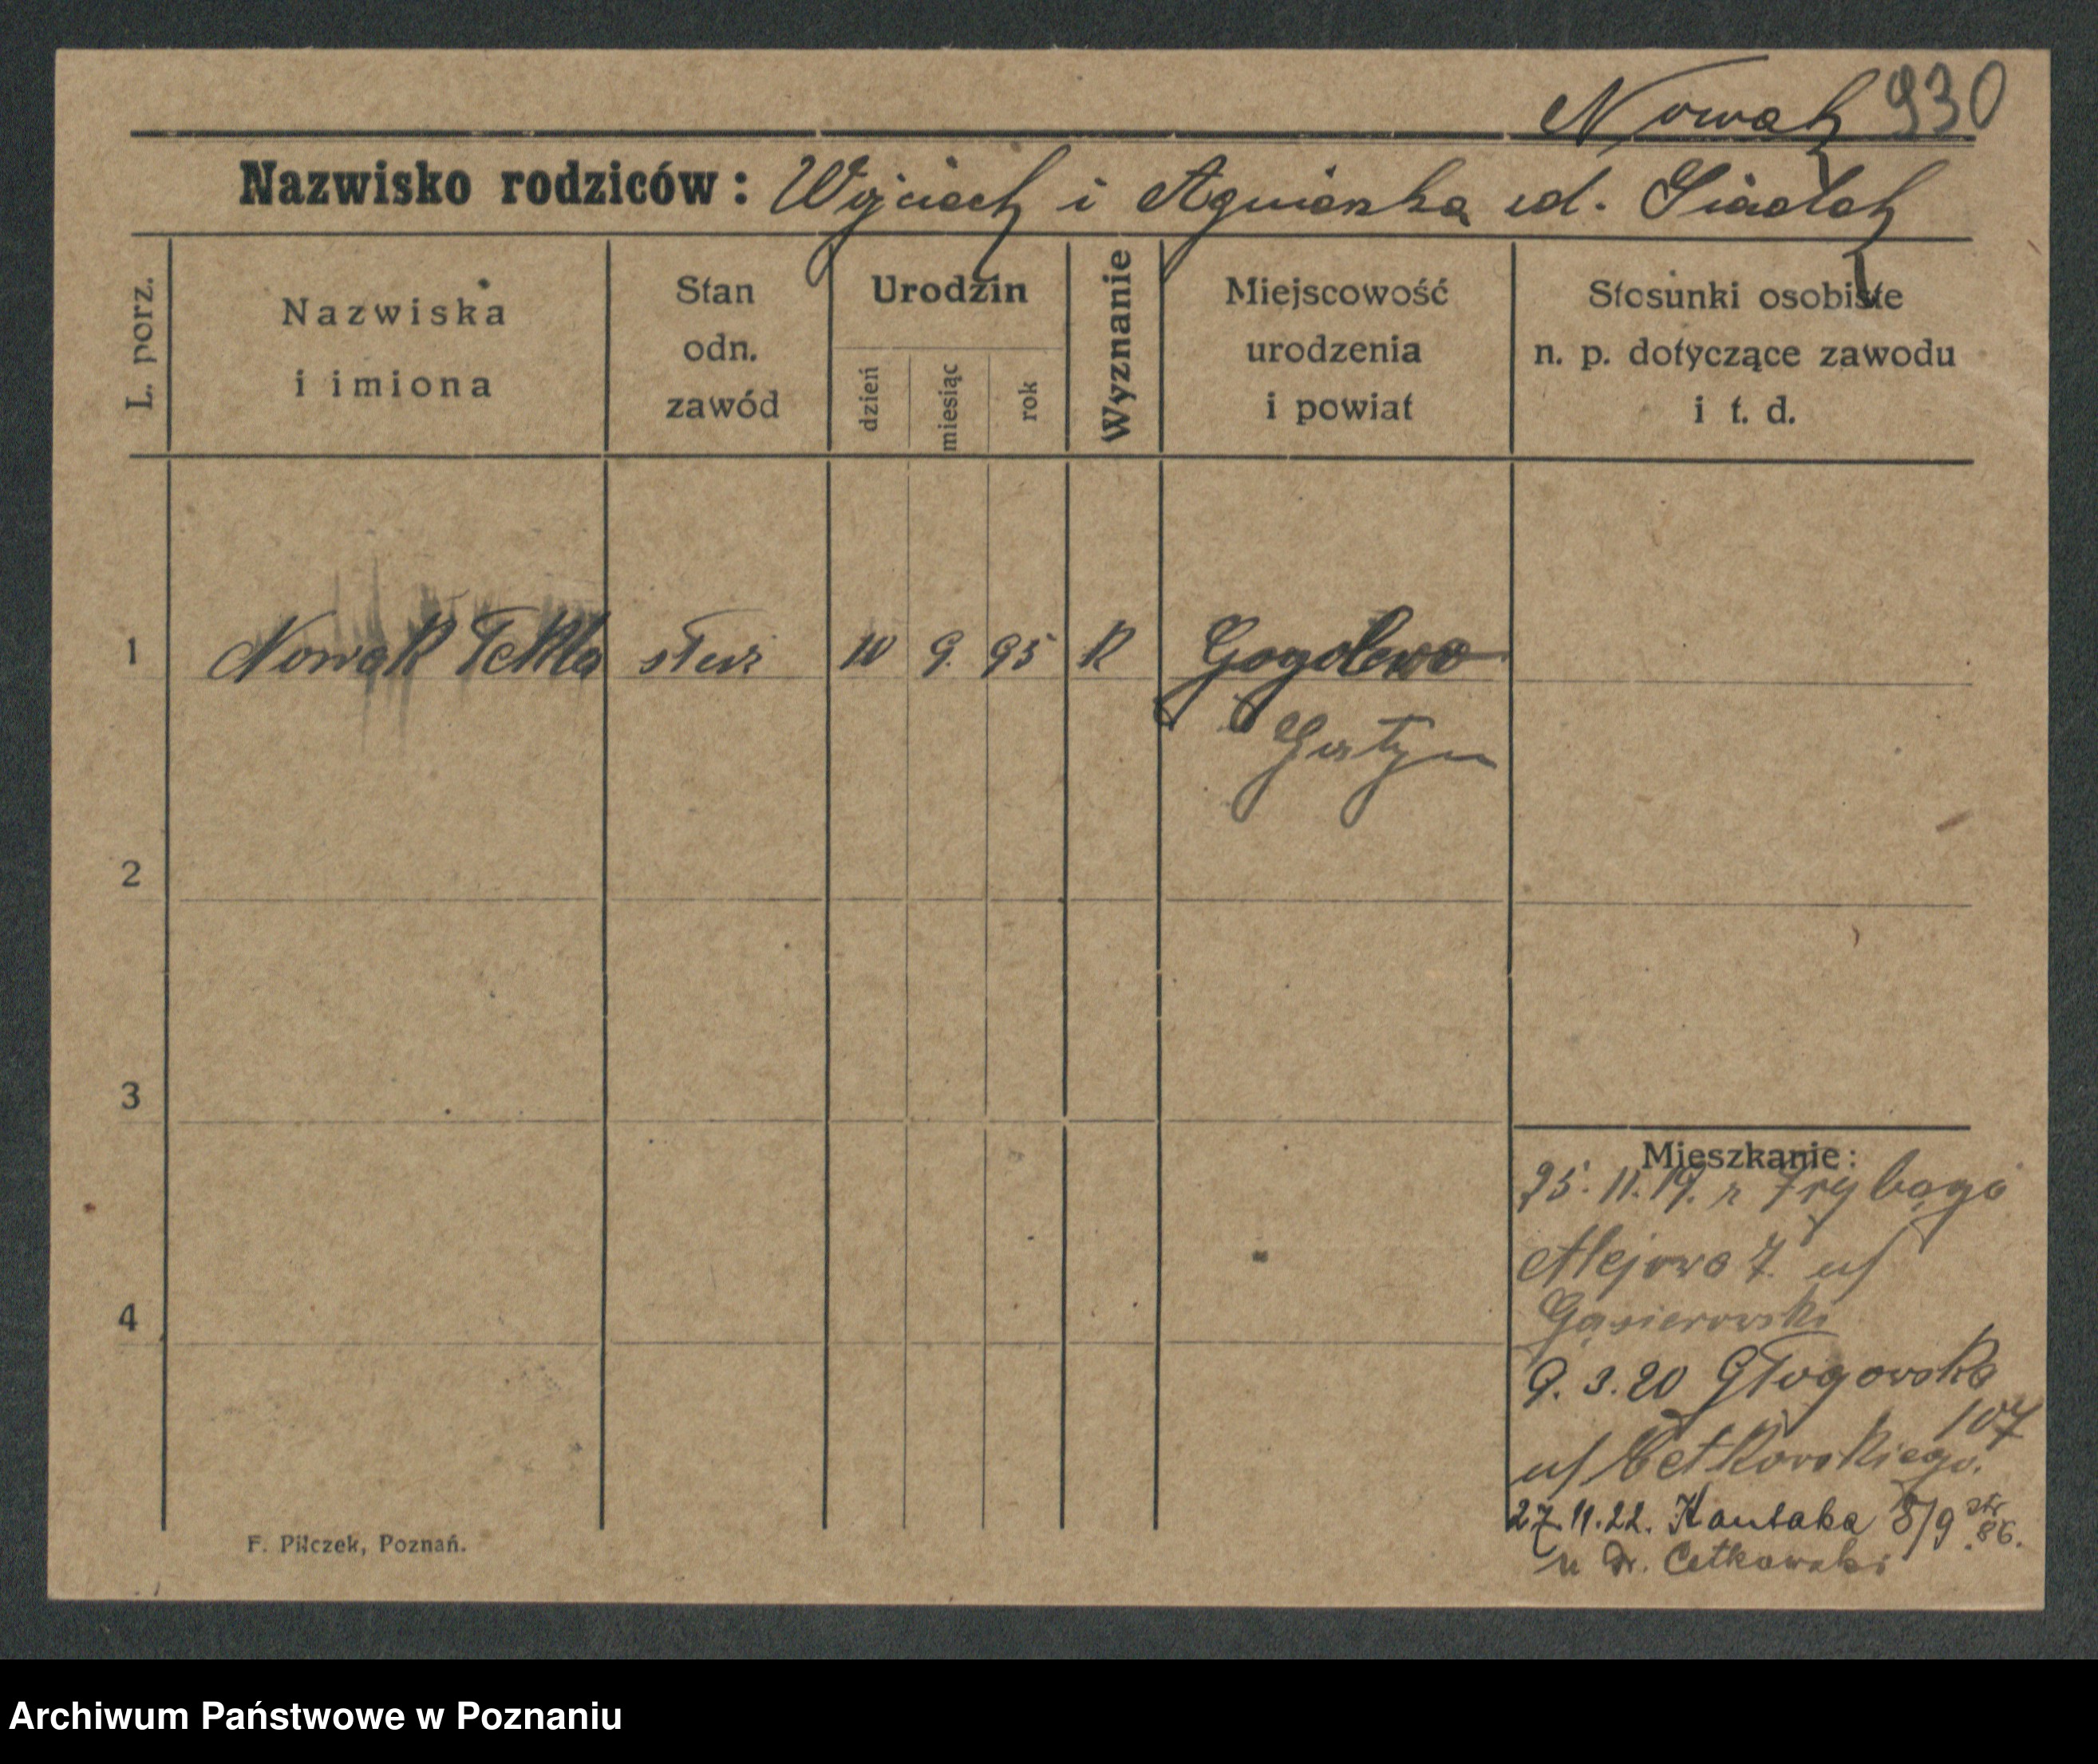 Nowak 930
Nazwisko rodziców: Wojciech i Agnieszka zd. Siadak
L. porz.
Nazwiska i imiona
Stan odn. zawód
Urodzin
dzień
miesiąc
rok
Wyznanie
Miejscowość urodzenia i powiat
Stosunki osobiste n. p. dotyczące zawodu i t. d.
1 Nowak Tekla służ 10 9. 95 K Gogolewo
Gostyn
2
3
4
Mieszkanie:
25. 11. 19. z
Alejowa 7. u/
Gąsierowski
9. 3. 20 Głogowska
107
u/ Cetkowskiego.
27.11.22. Kantaka 8/9 str. 86.
u Dr. Cetkowski
F. Pilczek, Poznań.
Archiwum Państwowe w Poznaniu